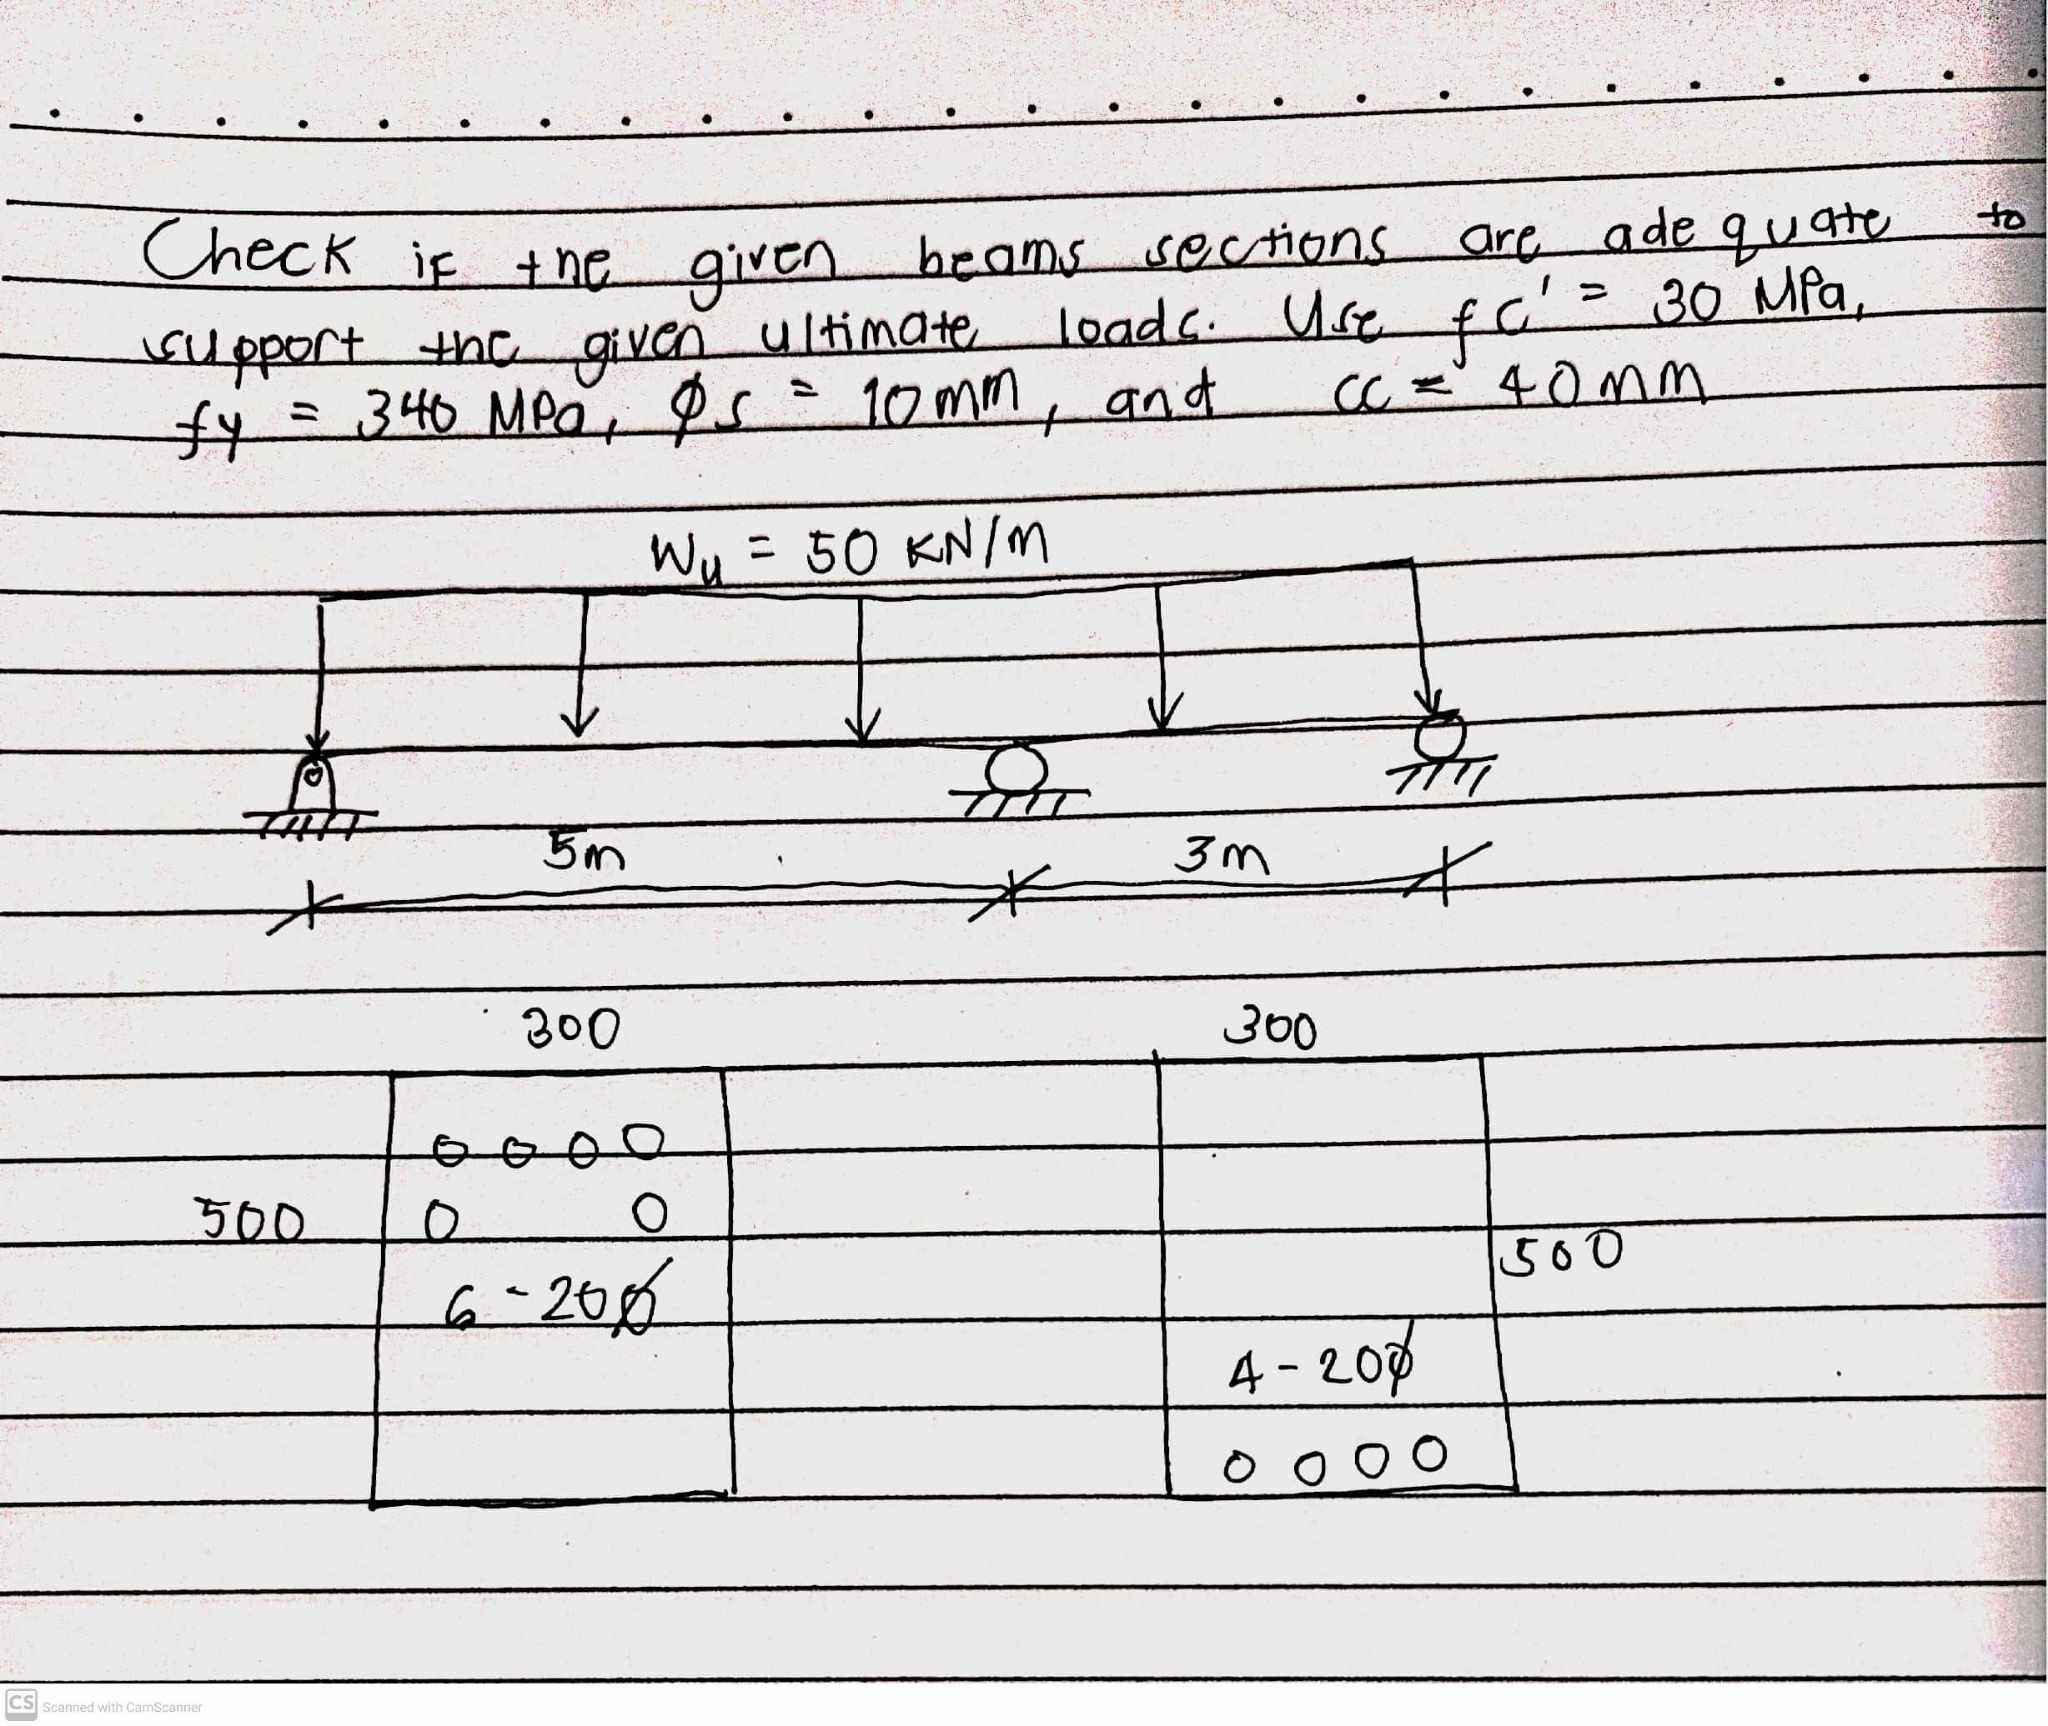 Check if the given beams sections are adequate to
support the given ultimate loads. Use fc' = 30 MPa,
fy = 340 MPa, Øs = 10mm, and cc = 40mm
Wu = 50 KN/m
5m 3m
300 300
500
6-20ø
500
4-20ø
CS Scanned with CamScanner